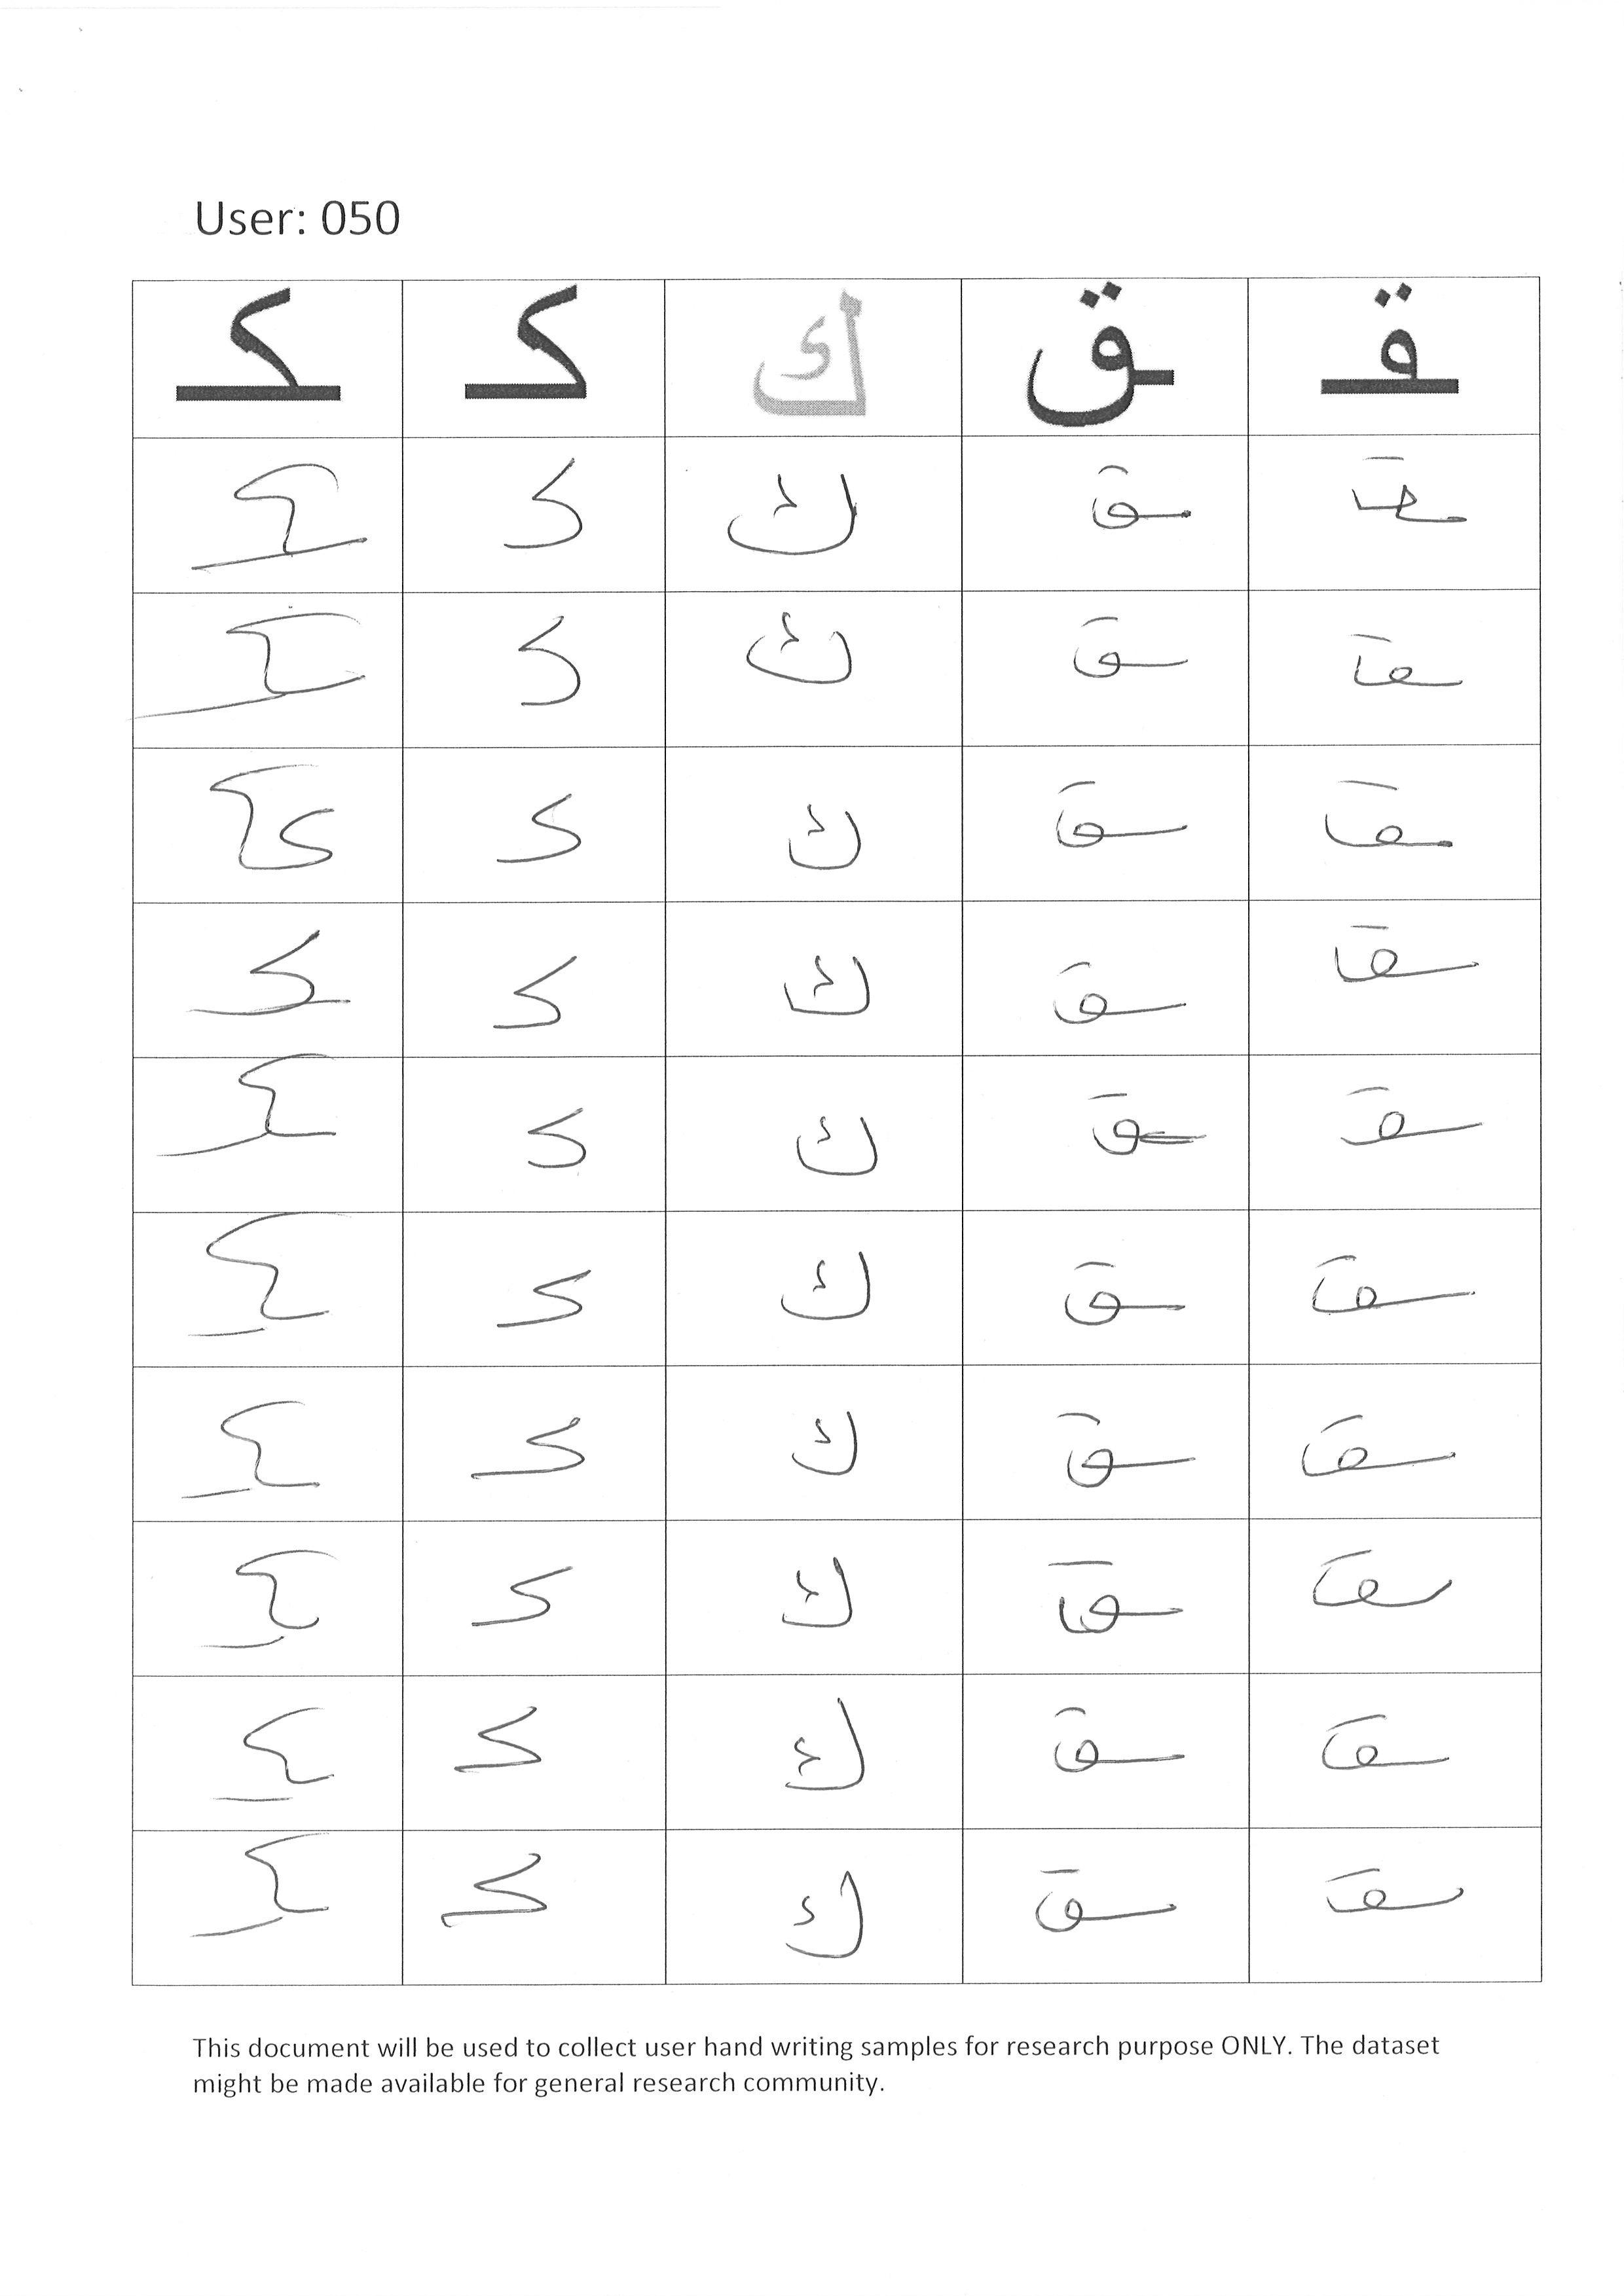 User: 050
ـقـ ـق ك كـ ـكـ
ـقـ ـق ك كـ ـكـ
ـقـ ـق ك كـ ـكـ
ـقـ ـق ك كـ ـكـ
ـقـ ـق ك كـ ـكـ
ـقـ ـق ك كـ ـكـ
ـقـ ـق ك كـ ـكـ
ـقـ ـق ك كـ ـكـ
ـقـ ـق ك كـ ـكـ
ـقـ ـق ك كـ ـكـ
ـقـ ـق ك كـ ـكـ
This document will be used to collect user hand writing samples for research purpose ONLY. The dataset
might be made available for general research community.